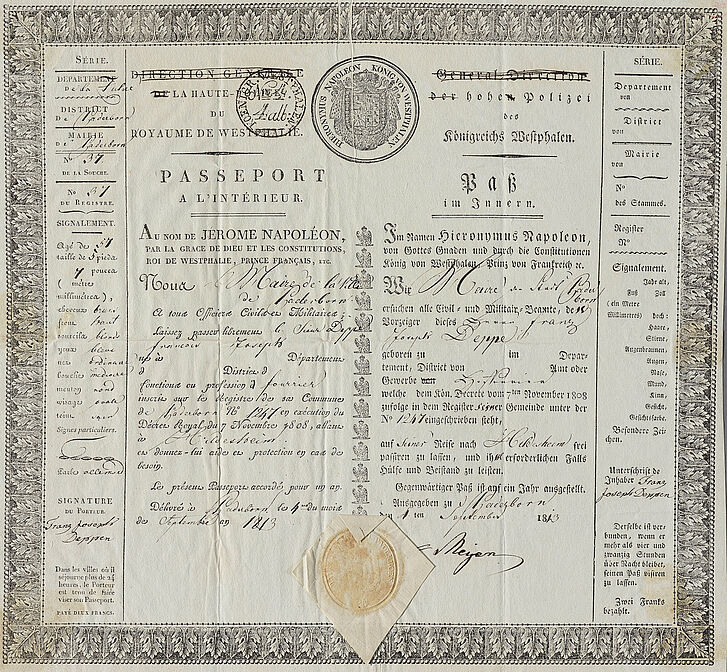 SÉRIE.
DEPARTEMENT
de la Fulde
DISTRICT
de Paderborn
MAIRIE
de Paderborn
No 37
DE LA SOUCHE.
No 37
DU REGISTRE.
SIGNALEMENT.
Agé de 51
taille de 5 pieds
7 pouces
(mètres
millimètres),
cheveux brun
sourcils blonds
yeux bleus
nez ordinaire
bouche médiocre
menton rond
visage ovale
teint
Signes particuliers.
Parle allemand
SIGNATURE
DU PORTEUR.
Franz Joseph
Deppen
Dans les villes où il
séjourne plus de 24
heures, le Porteur
est tenu de faire
viser son Passeport.
PAYE DEUX FRANCS.
DIRECTION GÉNÉRALE
DE LA HAUTE-
DU
ROYAUME DE WESTPHALIE.
HIERONYMUS NAPOLEON KÖNIG VON WESTPHALEN
PASSEPORT
A L'INTÉRIEUR.
AU NOM DE JEROME NAPOLÉON,
PAR LA GRACE DE DIEU ET LES CONSTITUTIONS,
ROI DE WESTPHALIE, PRINCE FRANÇAIS, ETC.
Nous Maire de la ville
de Paderborn
A tous Officiers Civils et Militaires:
laissez passer librement le Sieur Deppe
François Joseph
né à Département
d District d
fonctions ou profession d fourrier
inscrit sur les Registres de la Commune
de Paderborn No 1247 en exécution du
Décret Royal, du 7 Novembre 1808, allant
à Hildesheim
et donnez-lui aide et protection en cas de
besoin.
Le présent Passeport accordé pour un an.
Délivré à Paderborn le 4me du mois
de Septembre an 1813
General-Direction
der hohen Polizei
des
Königreichs Westphalen.
Paß
im Innern.
Im Namen Hieronymus Napoleon,
von Gottes Gnaden und durch die Constitutionen
König von Westphalen, Prinz von Frankreich ꝛc.
Wir Maire der Stadt Paderborn
ersuchen alle Civil- und Militair-Beamte, den
Vorzeiger dieses Herrn Franz
Joseph Deppe
geboren zu im Depar-
tement, District von Amt oder
Gewerbe
welche dem Kön. Decrete vom 7ten November 1808
zufolge in dem Register seiner Gemeinde unter der
No 1247 eingeschrieben steht,
auf seiner Reise nach Hildesheim frei
passiren zu lassen, und ihm erforderlichen Falls
Hülfe und Beistand zu leisten.
Gegenwärtiger Paß ist auf ein Jahr ausgestellt.
Ausgegeben zu Paderborn
den 4 ten September 1813
Meyer
SÉRIE.
Departement
von
District
von
Mairie
von
No
des Stammes.
Register
No
Signalement.
Jahr alt,
Fuß Zoll
(ein Metre
Millimetres) hoch:
Haare,
Stirne,
Augenbraunen,
Augen,
Nase,
Mund,
Kinn,
Gesicht,
Gesichtsfarbe.
Besondere Zei-
chen.
Unterschrift de
Inhaber Franz
Joseph Deppen
Derselbe ist ver-
bunden, wenn er
mehr als vier und
zwanzig Stunden
über Nacht bleibet,
seinen Paß visiren
zu lassen.
Zwei Franks
bezahlt.